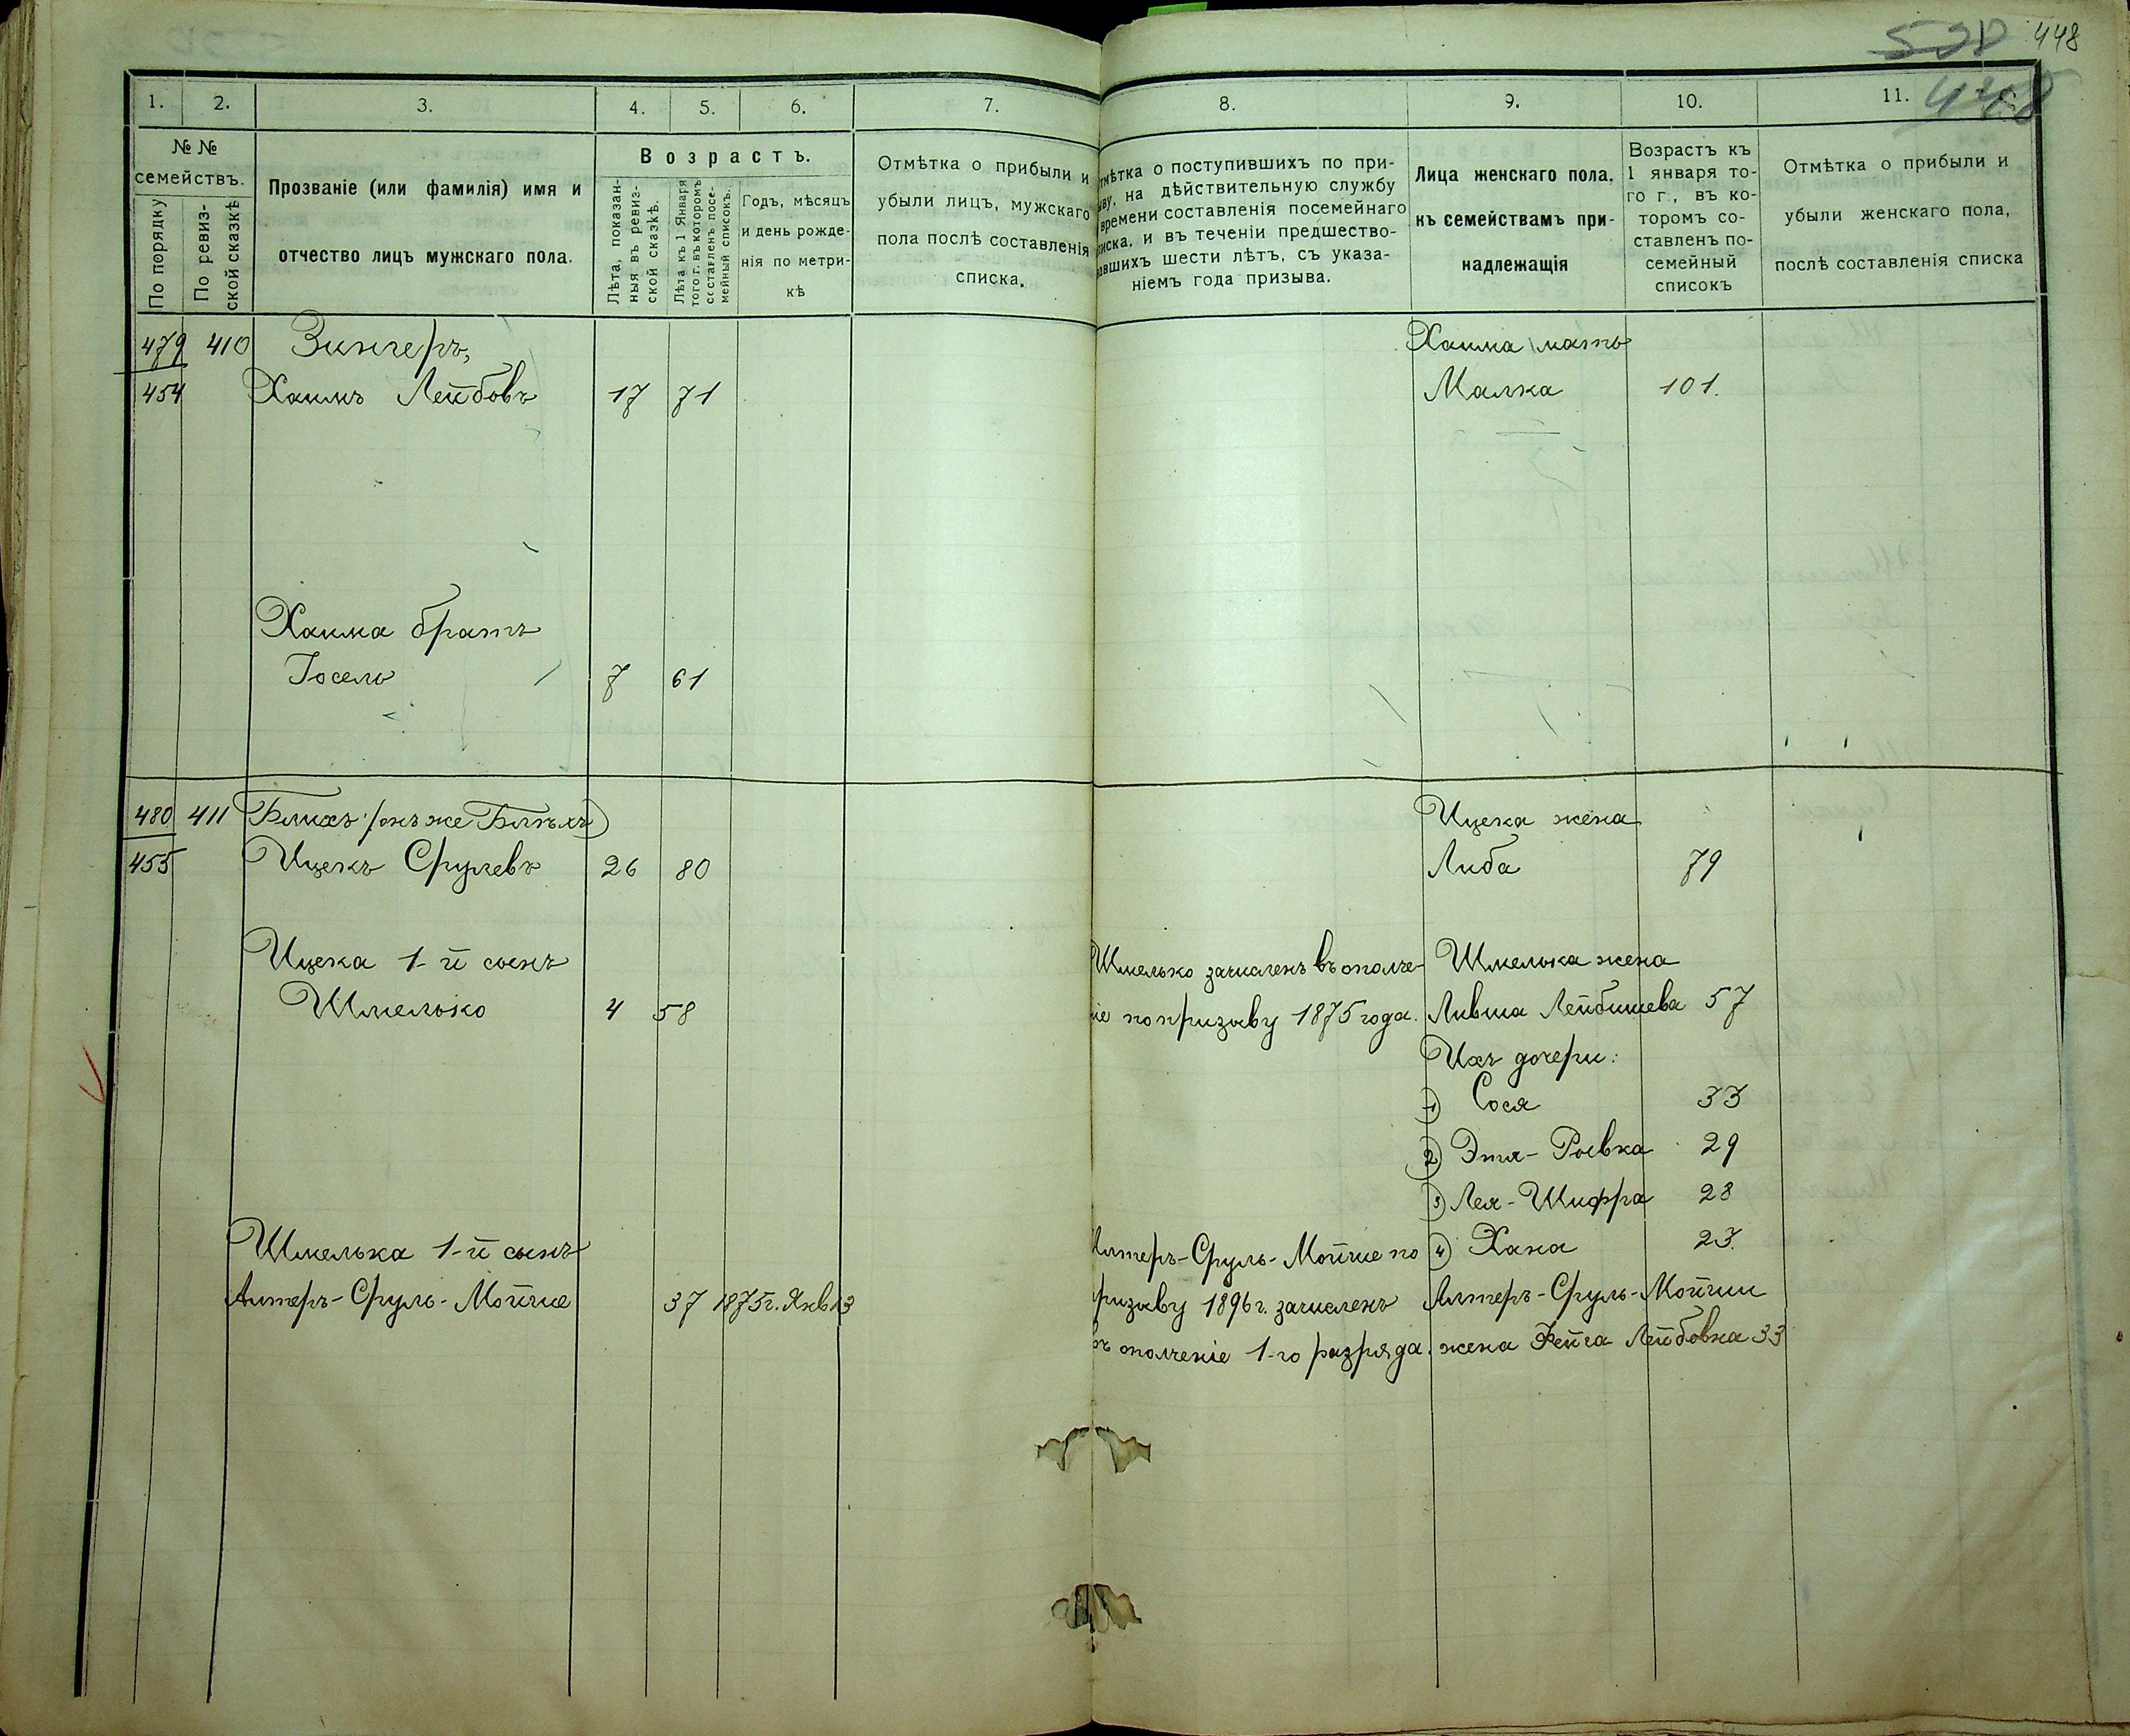 520 448
448
1. 2. 3. 4. 5. 6. 7. 8. 9. 10. 11.
№ №
семействъ.
По порядку
По ревиз-
ской сказкѣ
Прозваніе (или фамилія) имя и
отчество лицъ мужскаго пола.
Возрастъ.
Лѣта, показан-
ныя въ ревиз-
ской сказкѣ.
Лѣта къ 1 Января
того г. въ которомъ
составленъ посе-
мейный списокъ.
Годъ, мѣсяцъ
и день рожде-
нія по метри-
кѣ
Отмѣтка о прибыли и
убыли лицъ, мужскаго
пола послѣ составленія
списка.
тмѣтка о поступившихъ по при-
ыву, на дѣйствительную службу
времени составленія посемейнаго
писка, и въ теченіи предшество-
авшихъ шести лѣтъ, съ указа-
ніемъ года призыва.
Лица женскаго пола,
къ семействамъ при-
надлежащія
Возрастъ къ
1 января то-
го г., въ ко-
торомъ со-
ставленъ по-
семейный
списокъ
Отмѣтка о прибыли и
убыли женскаго пола,
послѣ составленія списка
479 410 Зингеръ, Хаима мать
454 Хаимъ Лейбовъ 17 71 Малка 101.
Хаима братъ
Іосель 7 61
480 411 Блихъ (онъ же Блѣхъ) Ицека жена
455 Ицекъ Срулевъ 26 80 Либа 79
Ицека 1-й сынъ Шмелько зачисленъ въ ополче- Шмелька жена
Шмелько 4 58 іе по призыву 1875 года. Ливша Лейбишева 57
Ихъ дочери:
1) Сося 33
2) Этя-Ривка 29
3) Лея-Шифра 28
Шмелька 1-й сынъ Алтеръ-Сруль-Мойше по 4) Хана 23.
Алтеръ-Сруль-Мойше 37 1875г. Янв 13 ризыву 1896 г. зачисленъ Алтеръ-Сруль-Мойши
въ ополченіе 1-го разряда. жена Фейга Лейбовна 33